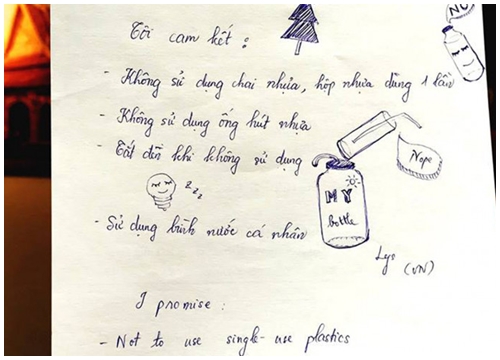 NO
Tôi cam kết :
- Không sử dụng chai nhựa, hộp nhựa dùng 1 lần
- Không sử dụng ống hút nhựa
- Tắt đèn khi không sử dụng
Nope
zzz
MY
bottle
- Sử dụng bình nước cá nhân
Lys (VN)
I promise :
- Not to use single-use plastics